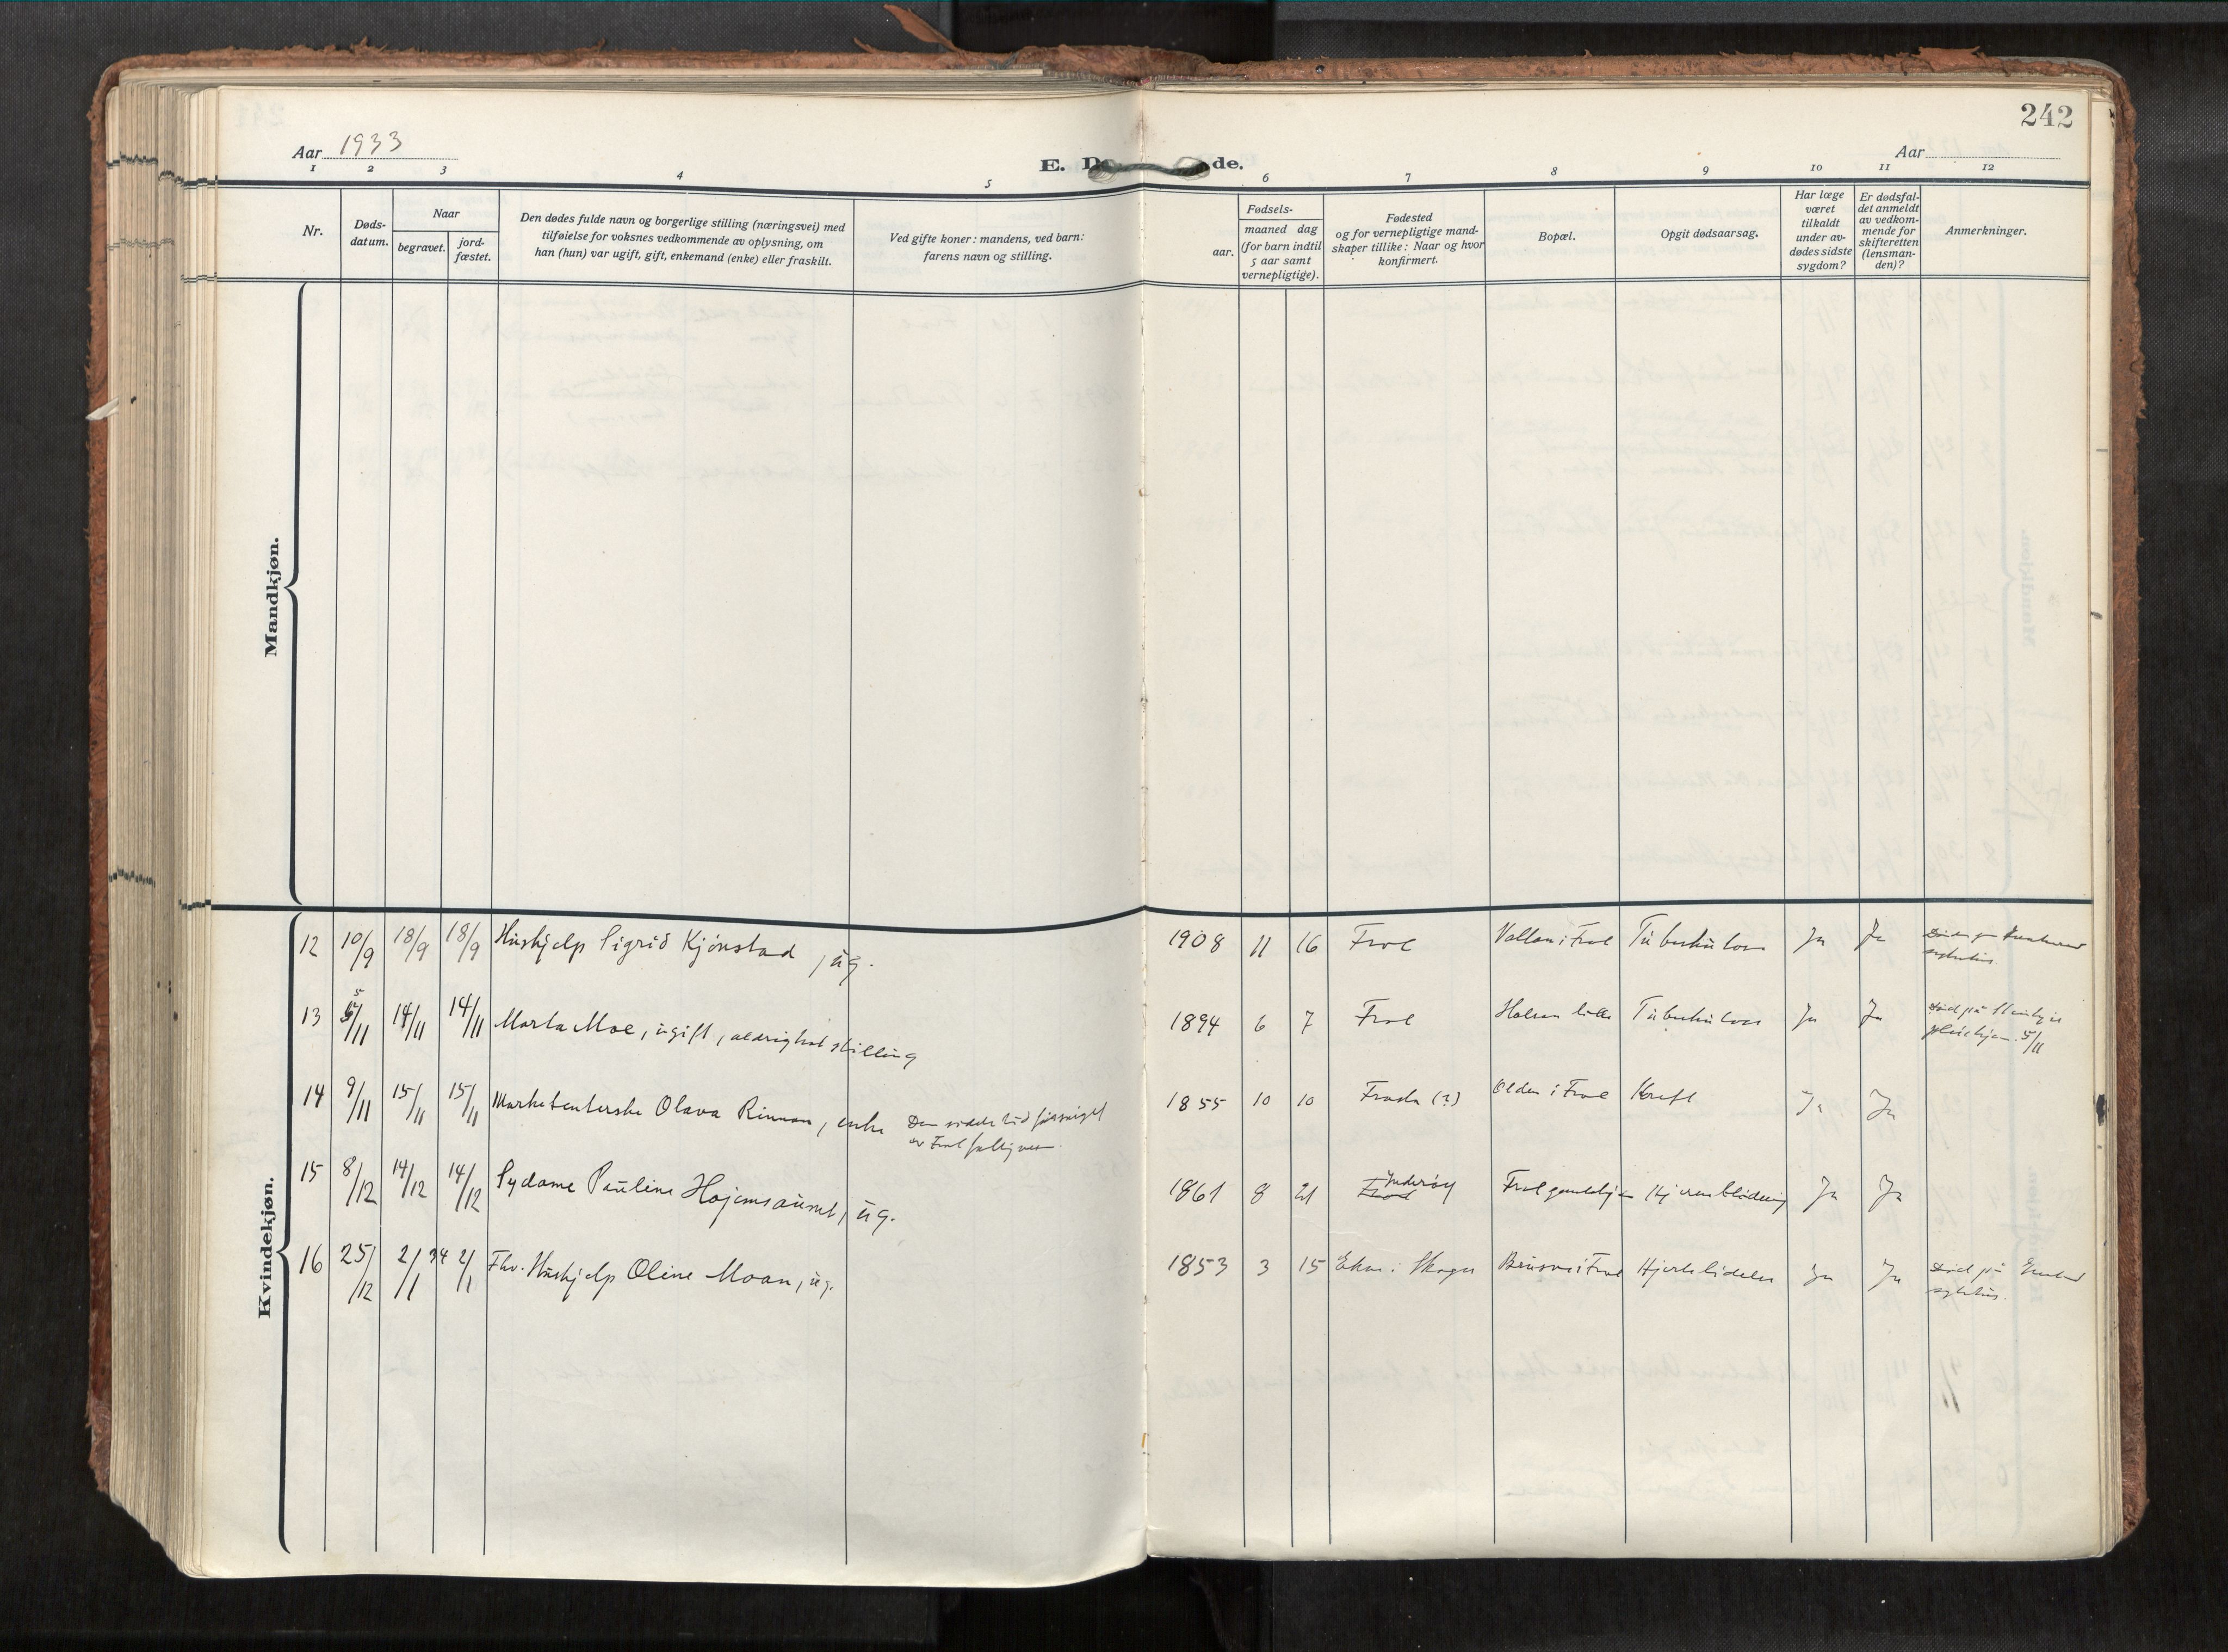 242
Aar 1933
E. D de.
Aar
1 2 3 4 5 6 7 8 9 10 11 12
Nr.
Døds-
datum.
Naar
begravet.
jord-
fæstet.
Den dødes fulde navn og borgerlige stilling (næringsvei) med
tilføielse for voksnes vedkommende av oplysning, om
han (hun) var ugift, gift, enkemand (enke) eller fraskilt.
Ved gifte koner: mandens, ved barn:
farens navn og stilling.
Fødsels-
aar.
maaned dag
(for barn indtil
5 aar samt
vernepligtige).
Fødested
og for vernepligtige mand-
skaper tillike: Naar og hvor
konfirmert.
Bopæl.
Opgit dødsaarsag.
Har læge
været
tilkaldt
under av-
dødes sidste
sygdom?
Er dødsfal-
det anmeldt
av vedkom-
mende for
skifteretten
(lensman-
den)?
Anmerkninger.
Mandkjøn.
Kvindekjøn.
12 10/9 18/9 18/9 Hushjelp Sigrid Kjønstad, ug. 1908 11 16 Frol Vollan i Frol Tuberkulose Ja Ja
sykehus.
13 5/11 14/11 14/11 Marta Moe, ugift, aldrig hat stilling 1894 6 7 Frol Halsan lille Tuberkulose Ja Ja Død på Steinkjer
pleiehjem 5/11
14 9/11 15/11 15/11 Marketenterske Olava Rinnan, enke Den sidste tid forsørget
av Frol fattigvesen. 1855 10 10 Frosta (?) Olden i Frol Kreft Ja Ja
15 8/12 14/12 14/12 Sydame Pauline Hojemsaunet, ug. 1861 8 21 Frol Inderøy Frol gamlehjem Hjerneblødning Ja Ja
16 25/12 2/1 34 2/1 Fhv. Hushjelp Oline Moan, ug. 1853 3 15 Ekne i Skogn Brusve i Frol Hjertelidelse Ja Ja Død på
sykehus.